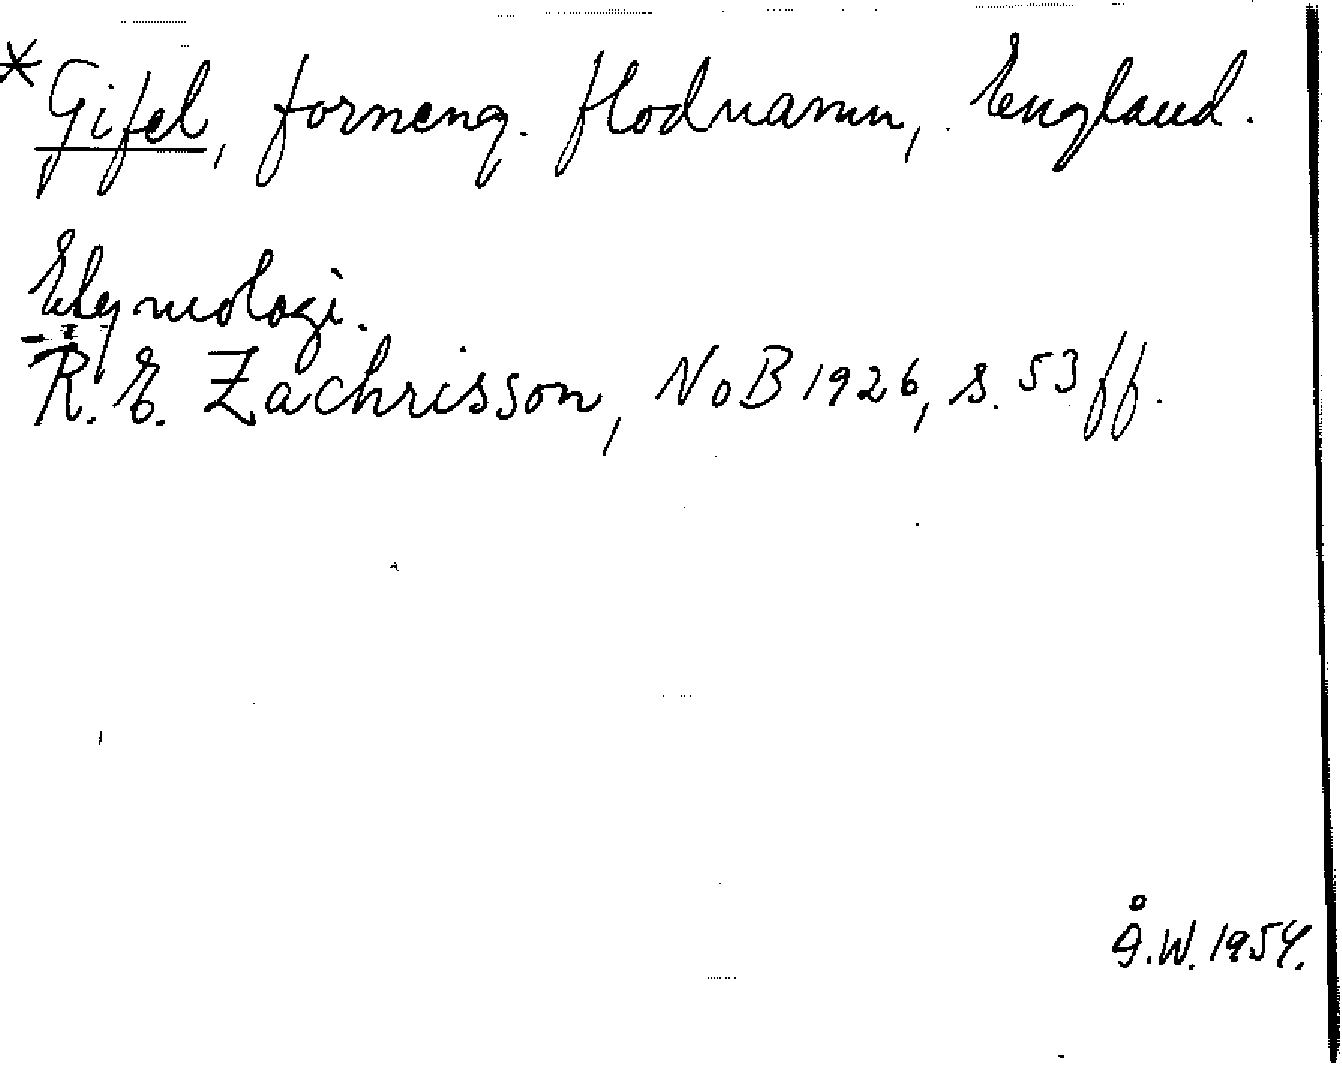 *Gifel, forneng. flodnamn, England.
Etymologi.
R. E. Zachrisson, NoB 1926, s. 53 ff.
Å.W. 1954.